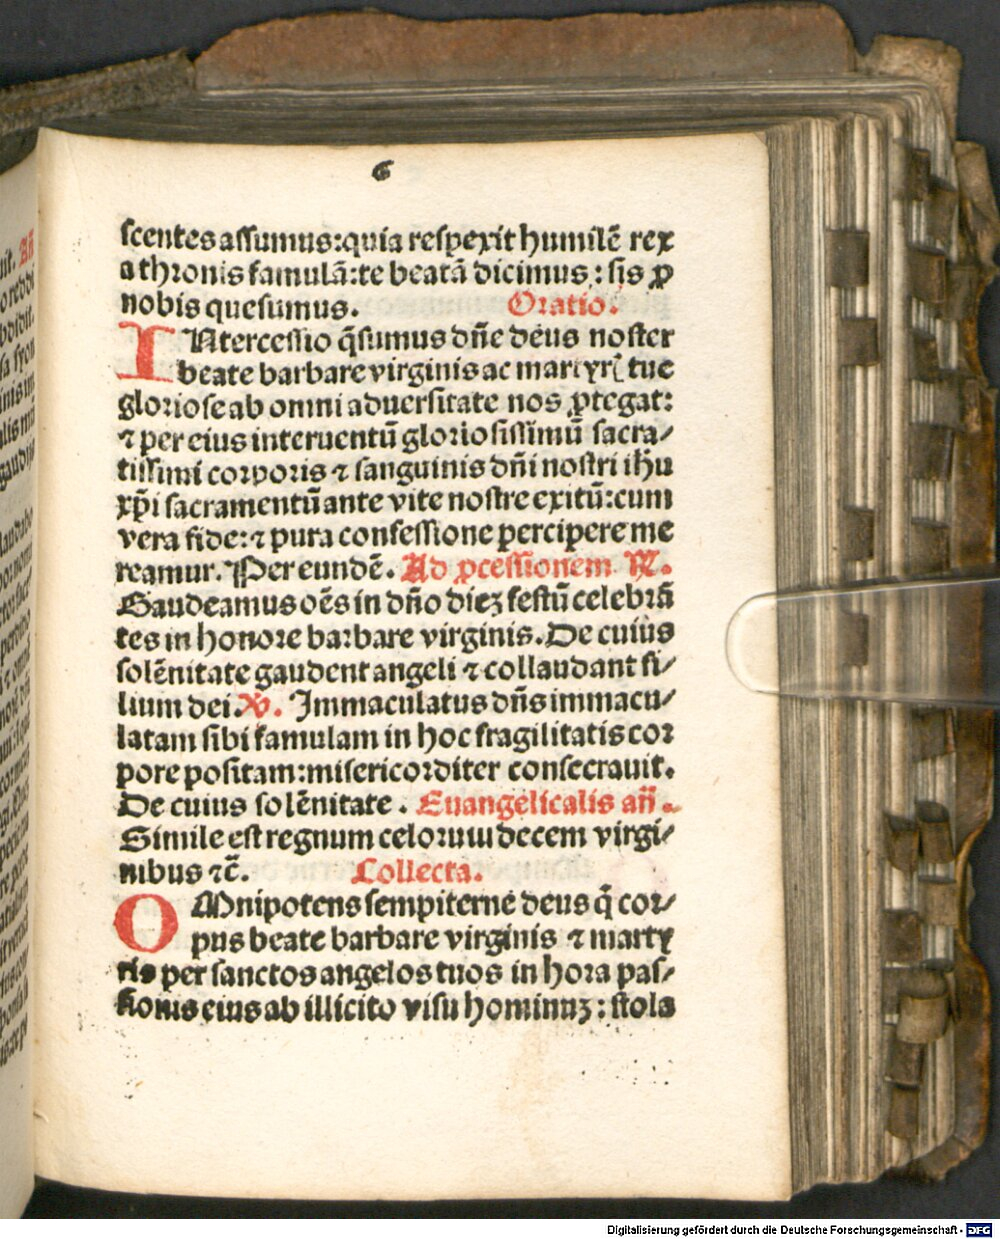 6
scentes assumus:quia respexit humilē rex
a thronis famulā:te beatā dicimus : sis ꝓ
nobis quesumus. Oratio.
INtercessio q̄sumus dn̄e deus noster
beate barbare virginis ac martyrꝭ tue
gloriose ab omni aduersitate nos ꝓtegat:
⁊ per eius interuentū gloriosissimū sacra/
tissimi corporis ⁊ sanguinis dn̄i nostri ih̄u
xp̄i sacramentū ante vite nostre exitū:cum
vera fide:⁊ pura confessione percipere me
reamur. Per eundē. Ad ꝓcessionem R̄.
Gaudeamus oēs in dn̄o dieꝫ festū celebrā
tes in honore barbare virginis. De cuius
solēnitate gaudent angeli ⁊ collaudant fi/
lium dei. V̄. Immaculatus dn̄s immacu/
latam sibi famulam in hoc fragilitatis cor
pore positam:misericorditer consecrauit.
De cuius solēnitate . Euangelicalis an̄.
Simile est regnum celorum decem virgi/
nibus ⁊c̄. Collecta.
OMnipotens sempiterne deus q̄ cor/
pus beate barbare virginis ⁊ marty
ris per sanctos angelos tuos in hora pas/
sionis eius ab illicito visu hominuꝫ : stola
Digitalisierung gefördert durch die Deutsche Forschungsgemeinschaft - DFG